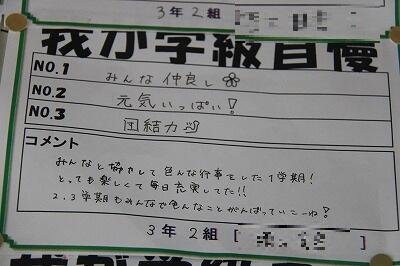 3年2組
我が学級自慢
NO.1 みんな仲良し
NO.2 元気いっぱい!
NO.3 団結力
コメント
みんなと協力して色んな行事をした1学期!
とっても楽しくて毎日充実してた!!
2.3学期もみんなで色んなことがんばっていこーね!
3年2組 [ ]
我が学級自慢